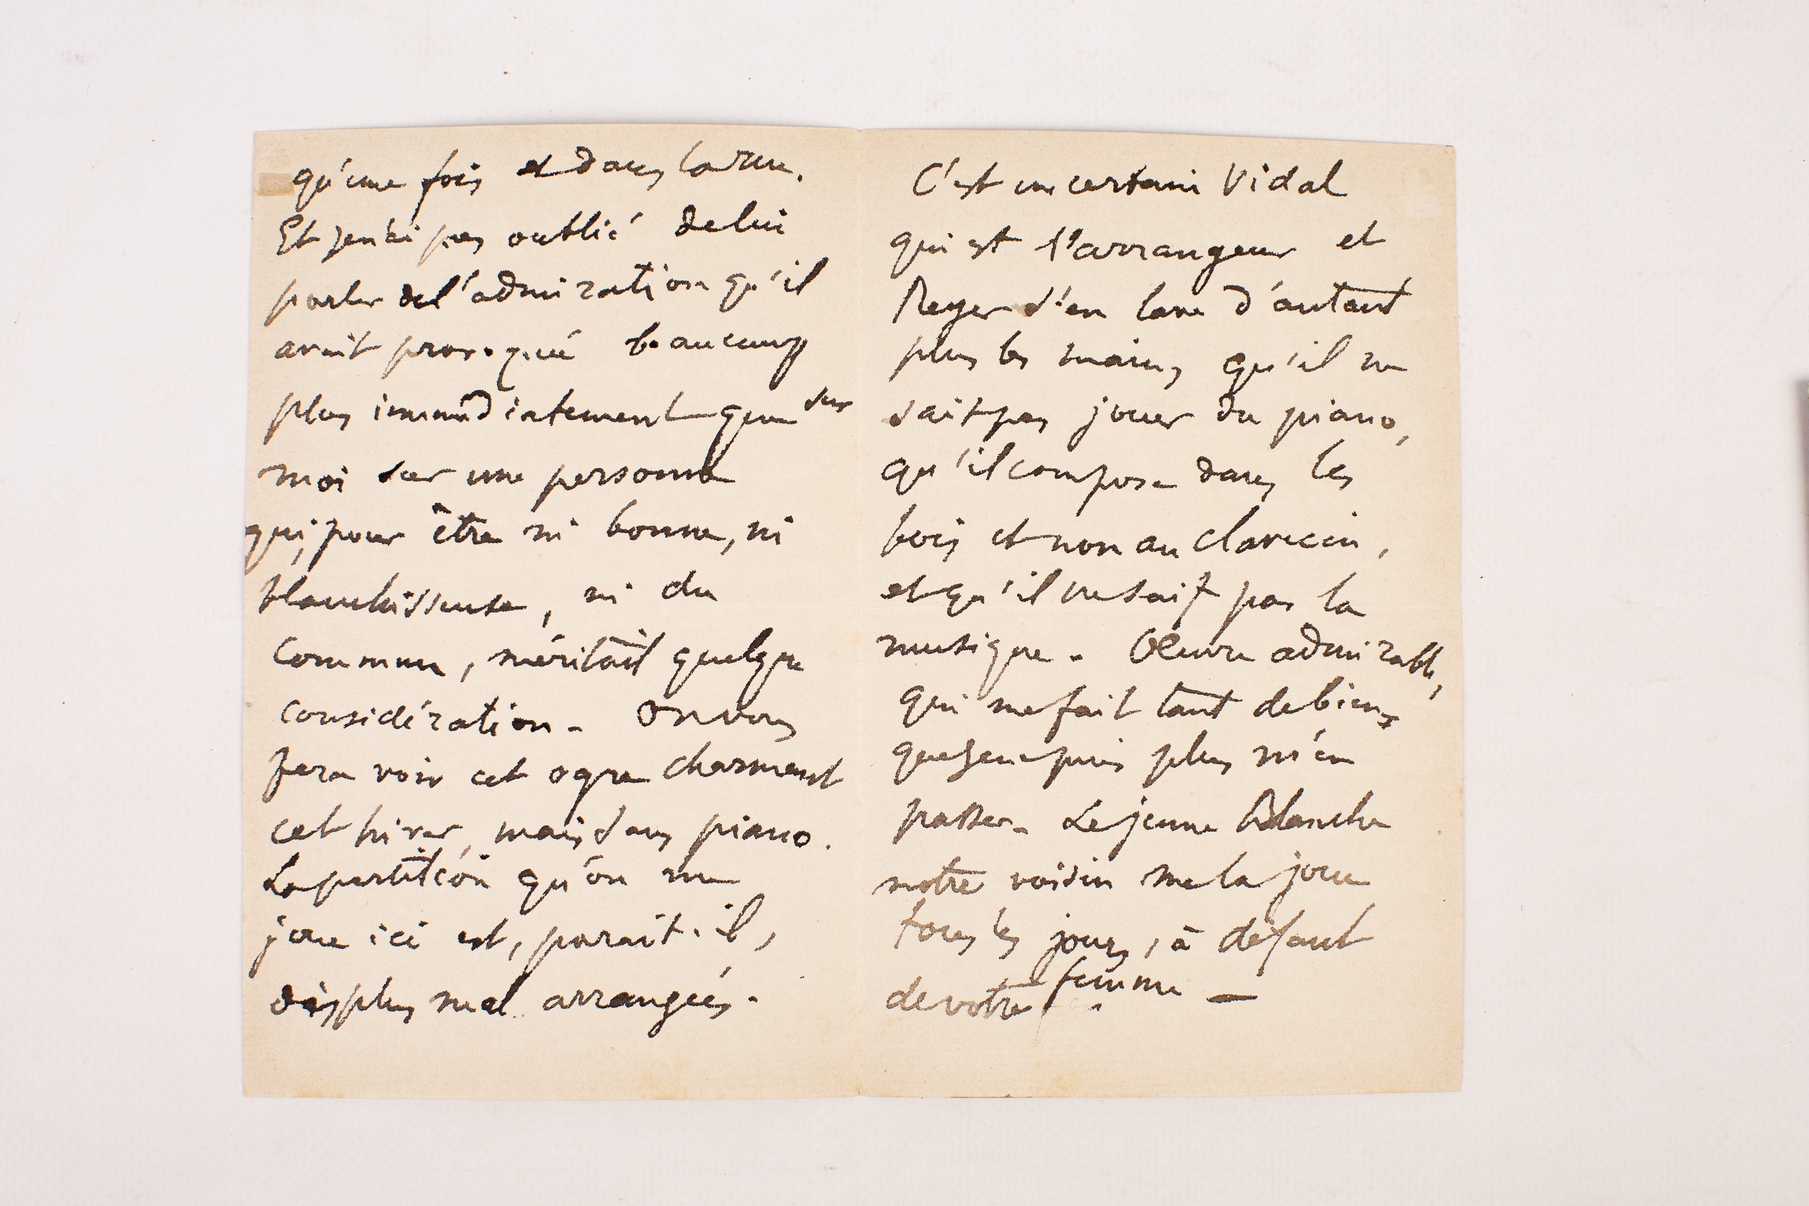 qu'une fois et dans la rue.
Et je n'ai pas oublié de lui
parler de l'admiration qu'il
avait provoquée beaucoup
plus immédiatement que sur
moi sur une personne
qui, pour être ni bonne, ni
blanchisseuse, ni du
commun, méritait quelque
considération. On vous
fera voir cet ogre charmant
cet hiver, mais sans piano.
La partition qu'on me
joue ici est, parait-il,
des plus mal arrangées.
C'est un certain Vidal
qui est l'arrangeur et
Reyer s'en lave d'autant
plus les mains qu'il ne
sait pas jouer du piano,
qu'il compose dans les
bois et non au clavecin,
et qu'il ne sait pas la
musique. Oeuvre admirable,
qui me fait tant de bien
que je ne puis plus m'en
passer. Le jeune Blanche
notre voisin me la joue
tous les jours, à défaut
de votre femme —